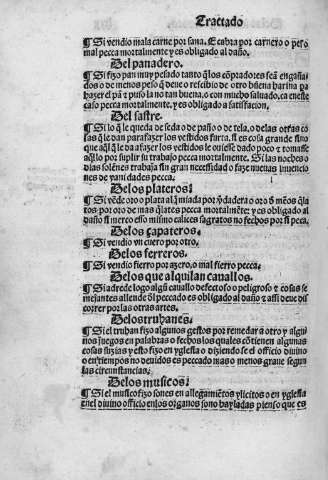 Tractado
¶ Si vendio mala carne por sana. E cabra por carnero o peso
mal pecca mortalmente y es obligado al daño.
Del panadero.
¶ Si fizo pan muy pesado tanto q̃ los cõpradores seã engaña-
dos o de menos peso q̃ deue o rescibio de otro buena harina pa
hazer el pã y puso la no tan buena, o con mucho saluado, ca en este
caso pecca mortalmente, y es obligado a satisfacion.
Del sastre.
¶ Si lo q̃ le queda de seda o de paño o de tela, o de las otras co
sas q̃ le dan para fazer los vestidos furta. si es cosa grande sino
que aq̃l q̃ le da a fazer los vestidos le ouiesse dado poco y tomasse
aq̃llo por suplir su trabajo pecca mortalmente. Si las noches o
dias solẽnes trabaja sin gran necessidad o faze nueuas inuencio
nes de vanidades pecca.
Delos plateros:
¶ Si vẽde oro o plata alq̃miada por ṽdadera o oro d̃ mẽos q̃la
tes por oro de mas q̃lates pecca mortalmẽte: y es obligado al
daño si merco esso mismo calices sagrados no fechos por si peca.
Delos çapateros.
¶ Si vendio vn cuero por otro.
Delos ferreros.
¶ Si vendio fierro por azero, o mal fierro pecca.
Delos que alquilan cauallos.
¶ Si adrede logo algũ cauallo defectoso o peligroso y cosas se
mejantes allende õl peccado es obligado al daño y assi deue dis
correr por las otras artes.
Delos truhanes.
¶ Si el truhan fizo algunos gestos por remedar a otro y algu
nos juegos en palabras o fechos los quales cõtienen algunas
cosas suzias y esto fizo en yglesia o diziendo se el officio diuino
o en tiempos no deuidos es peccado mas o menos graue segun
las circunstancias.
Delos musicos:
¶ Si el musico fizo sones en allegamiẽtos ylicitos o en yglesia
en el diuino officio en los organos sono bayladas pienso que es